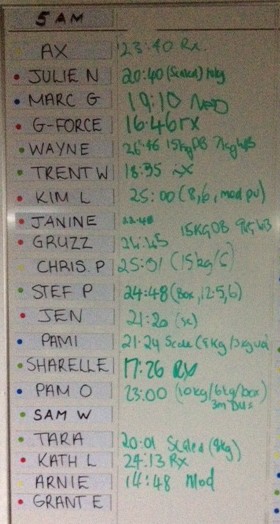 5 AM
AX 23:40 Rx
JULIE N 20:40 (Scaled) 10kg
MARC G 19:10
G-FORCE 16:46 rx
WAYNE 26:46 15kg DB 7kg WB
TRENT W 18:35 rx
KIM L 25:00 (8,6, mod pu)
JANINE 15KG DB 9KG WB
GRUZZ
CHRIS. P 25:01 (15kg/6)
STEF P 24:48 (Box, 12.5, 6)
JEN 21:20 (sc)
PAMI 21:24 Scale
SHARELLE 17:26 RX
PAM O 23:00 (10kg/6kg/box)
SAM W
TARA 20:01 Scaled (9kg)
KATH L 24:13 Rx
ARNIE 14:48 Mod
GRANT E